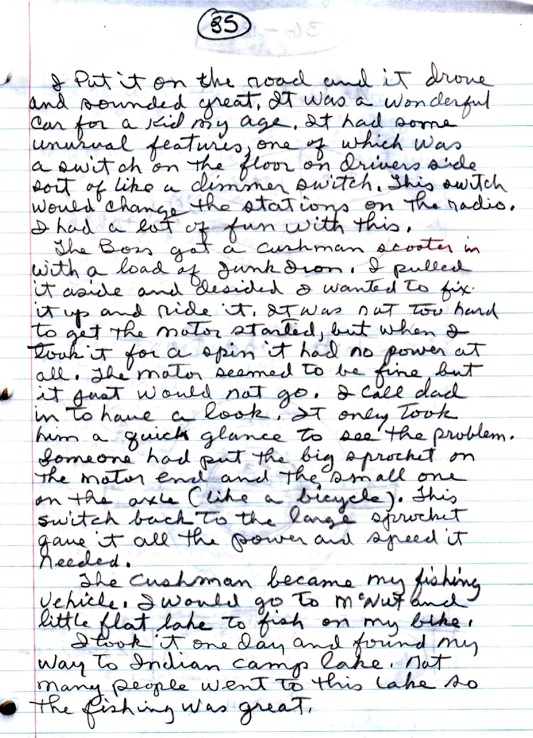 35
I Put it on the road and it drove
and sounded great. It was a wonderful
Car for a Kid my age. It had some
unusual features, one of which was
a switch on the floor on drivers side
sort of like a dimmer switch. This switch
would change the stations on the radio.
I had a lot of fun with this.
The Boss got a cushman scooter in
with a load of Junk Iron. I pulled
it aside and desided I wanted to fix
it up and ride it. It was not too hard
to get the motor started, but when I
took it for a spin it had no power at
all. The motor seemed to be fine but
it just would not go. I call dad
in to have a look. It only took
him a quick glance to see the problem.
Someone had put the big sprocket on
the motor end and the small one
on the axle (like a bicycle). This
switch back to the large sprocket
gave it all the power and speed it
needed.
The Cushman became my fishing
vehicle. I would go to McNut and
little flat lake to fish on my bike.
I took it one day and found my
way to Indian camp lake. Not
many people went to this lake so
the fishing was great.